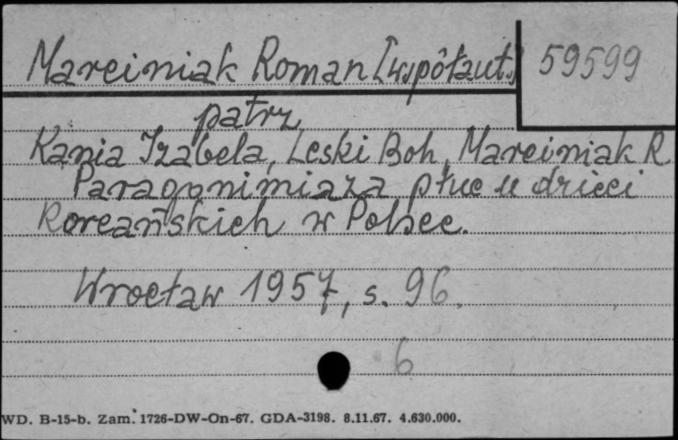 Marciniak Roman [współaut.] 59599
patrz
Kania Izabela, Leski Boh, Marciniak R
Paragonimiaza płuc u dzieci
Koreańskich w Polsce.
Wrocław 1957, s. 96.
6
WD. B-15-b. Zam. 1726-DW-On-67. GDA-3198. 8.11.67. 4.630.000.